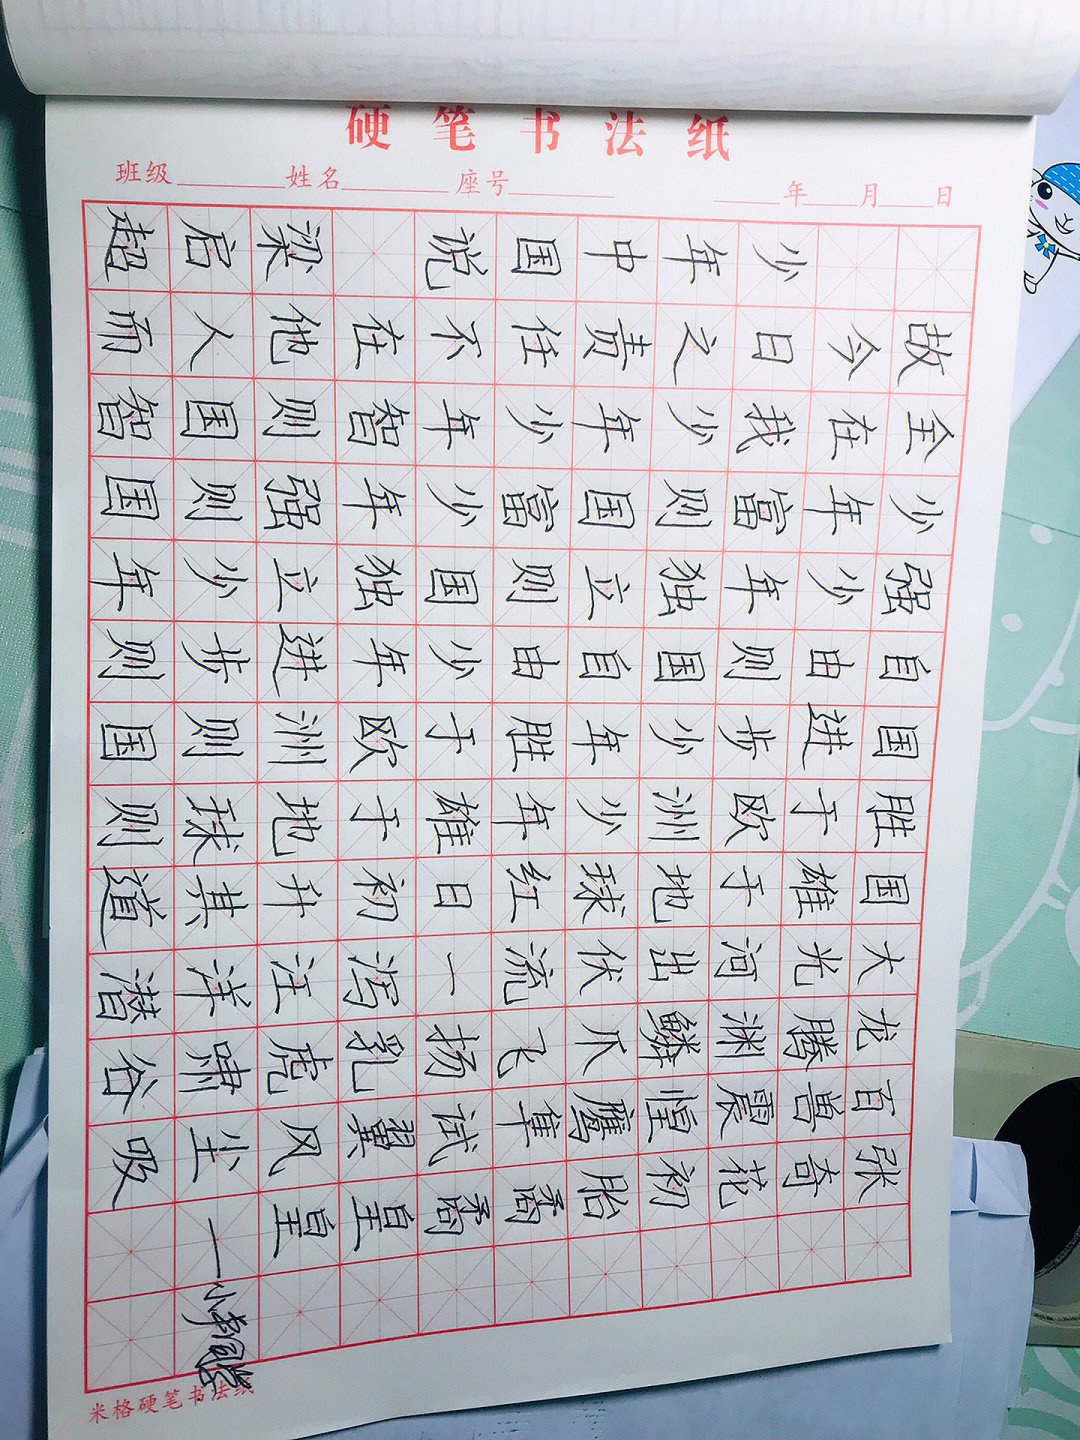 硬笔书法纸
班级 姓名 座号 年 月 日
少年中国说 梁启超
故今日之责任不在他人而
全在我少年少年智则国智
少年富则国富少年强则国
强少年独立则国独立少年
自由则国自由少年进步则
国进步少年胜于欧洲则国
胜于欧洲少年雄于地球则
国雄于地球红日初升其道
大光河出伏流一泻汪洋潜
龙腾渊鳞爪飞扬乳虎啸谷
百兽震惶鹰隼试翼风尘吸
张奇花初胎矞矞皇皇
—小李同学
米格硬笔书法纸